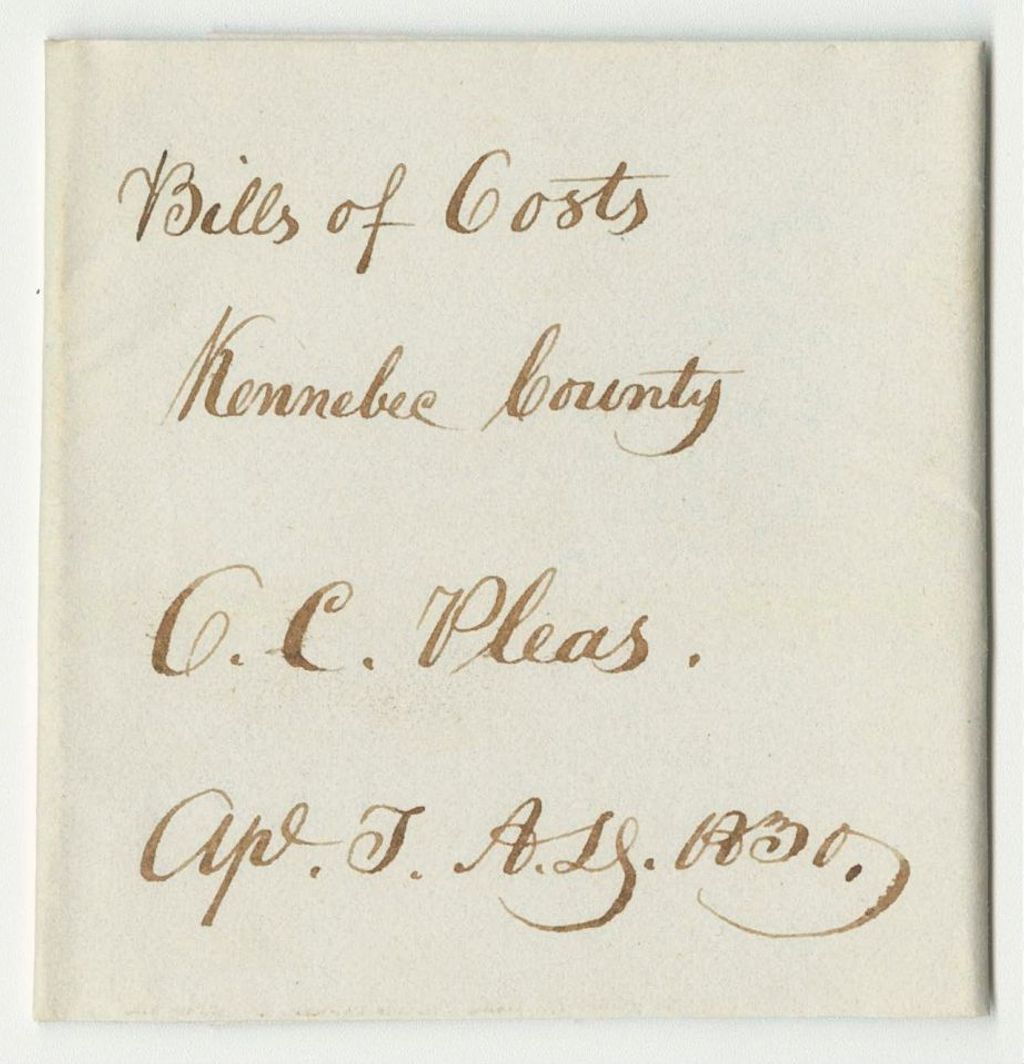 Bills of Costs
Kennebec County
C. C. Pleas.
Apl. T. A.D. 1830.